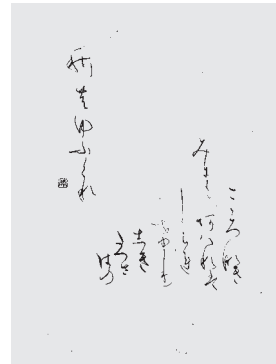 こころなき
みにも阿はれは
しられ
けり
志き
たつさ
はの
秋のゆふくれ